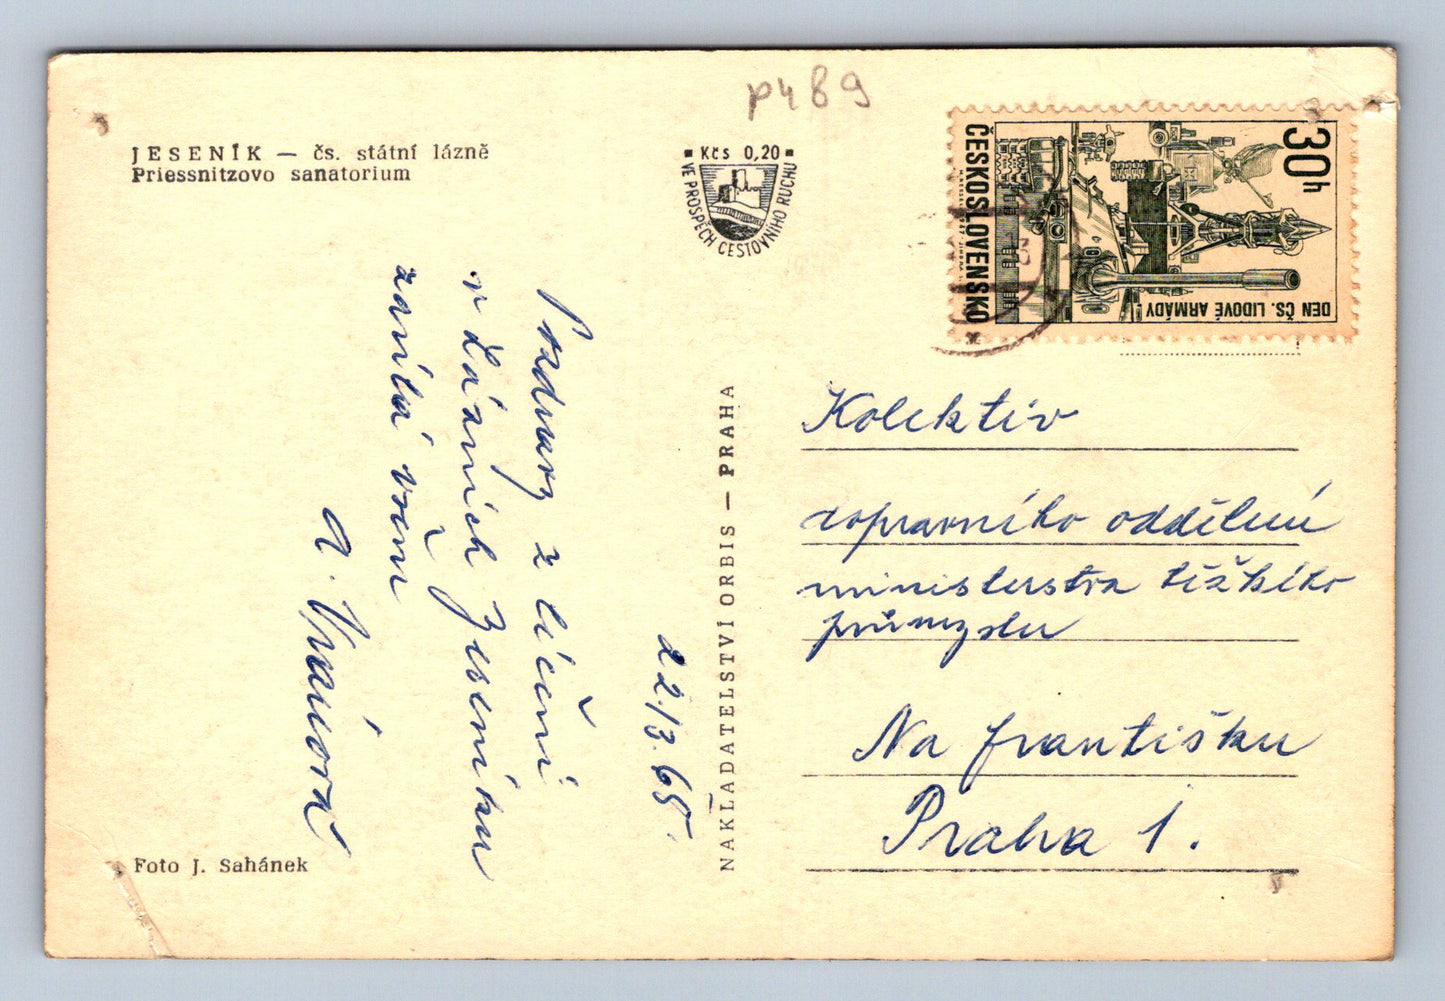 p489
JESENÍK — čs. státní lázně
Priessnitzovo sanatorium
Kčs 0,20
VE PROSPĚCH CESTOVNÍHO RUCHU
30h
ČESKOSLOVENSKO
DEN ČS. LIDOVÉ ARMÁDY
Pozdravy z léčení
v Lázních Jeseníku
zasílá všem
A. Vránová
22/3.68.
NAKLADATELSTVÍ ORBIS — PRAHA
Kolektiv
dopravního oddělení
ministerstva těžkého
průmyslu
Na františku
Praha 1.
Foto J. Sahánek